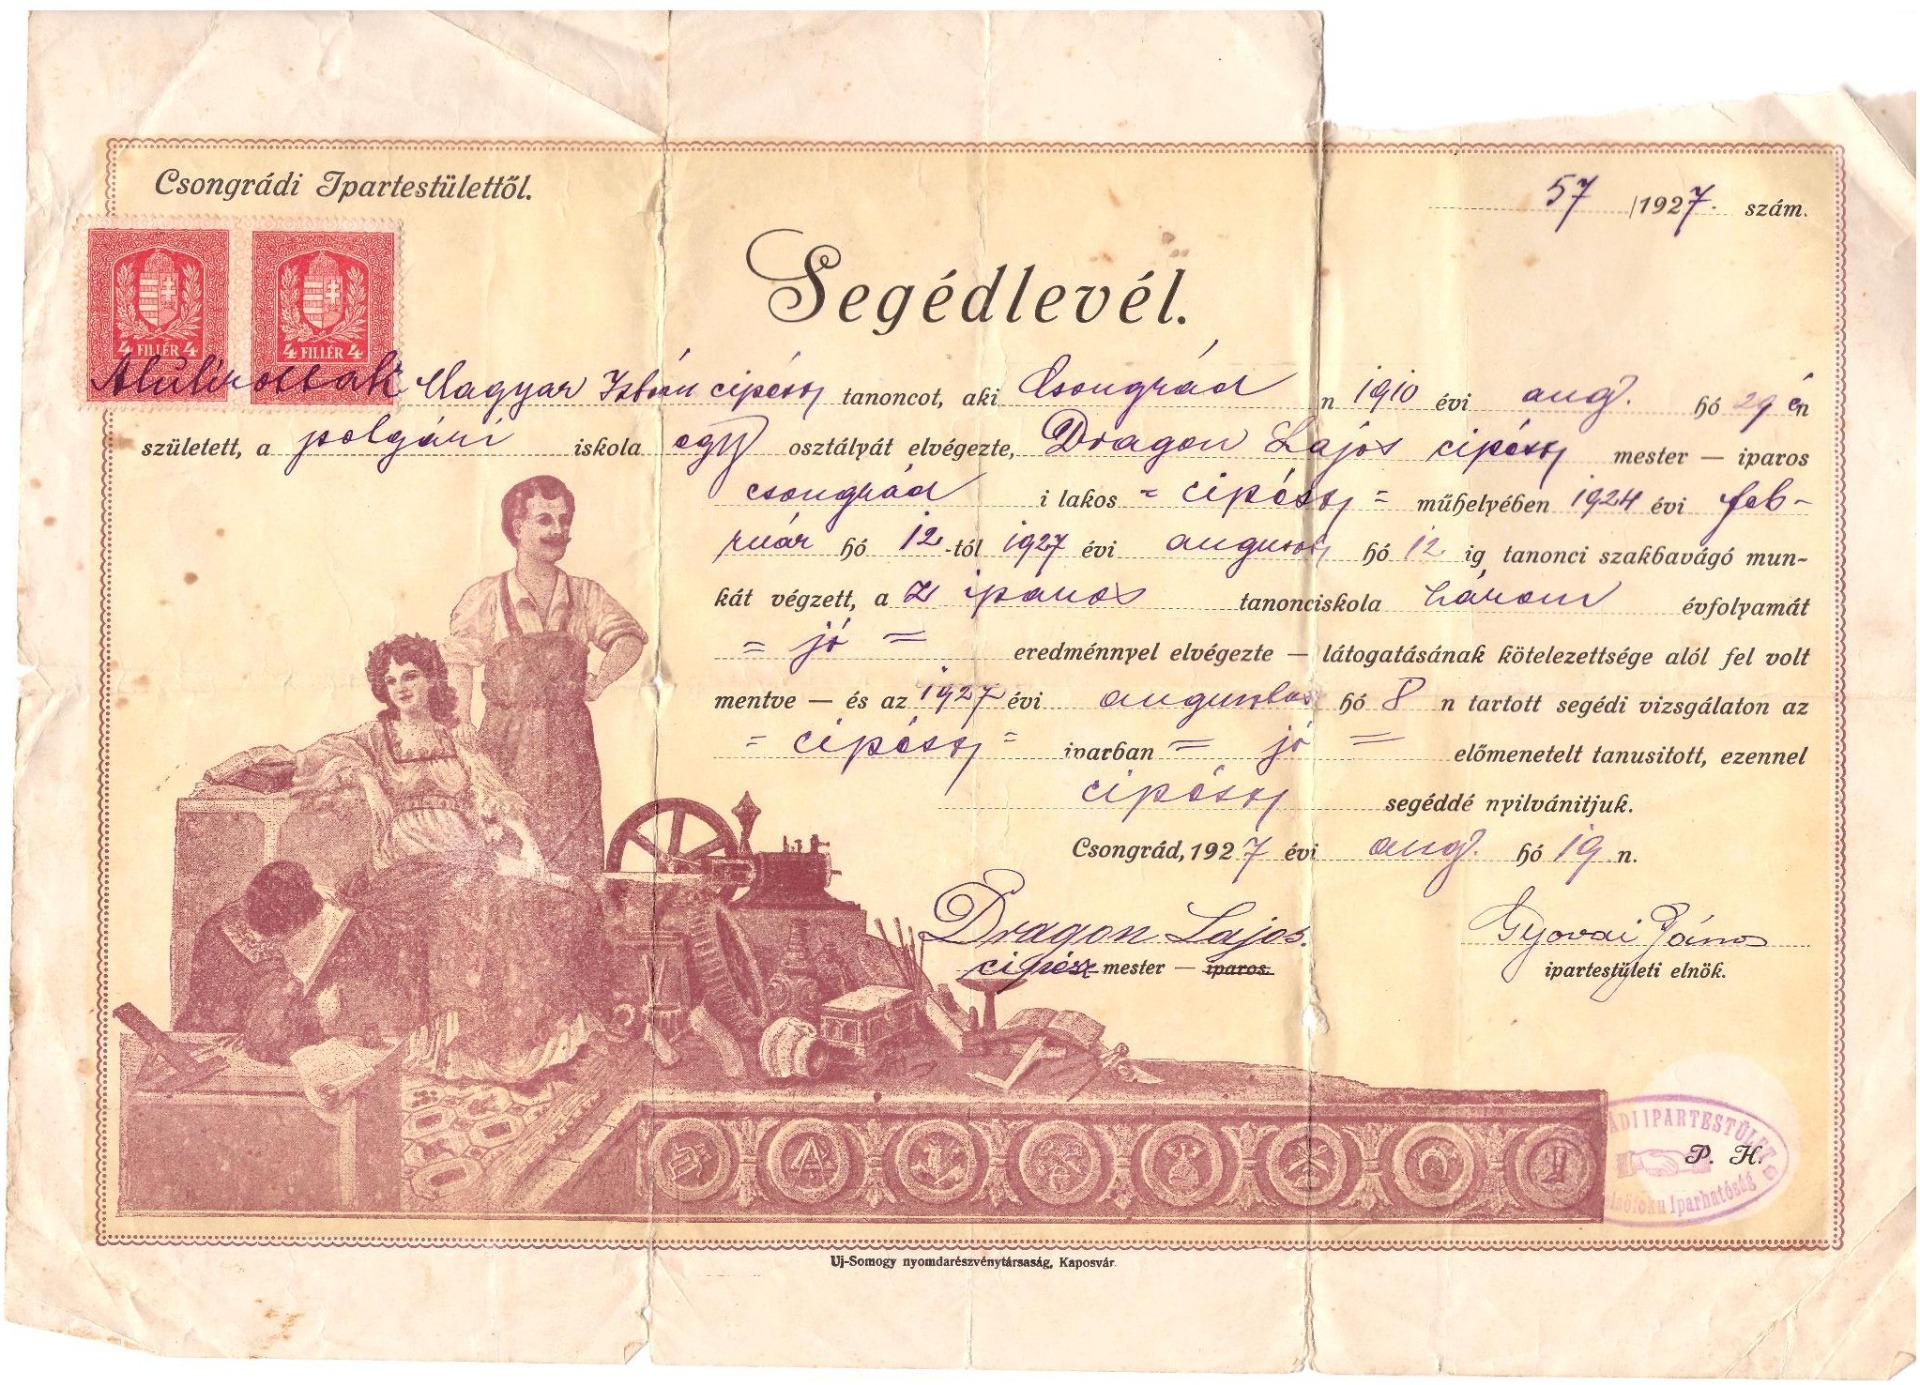 Csongrádi Ipartestülettől.
57 /1927. szám.
4 FILLÉR 4 4 FILLÉR 4
Segédlevél.
Alulirottak Magyar István cipész tanoncot, aki Csongrád n 1910 évi aug. hó 29 én
született, a polgári iskola egy osztályát elvégezte, Dragon Lajos cipész mester — iparos
csongrád i lakos = cipész = műhelyében 1924 évi feb-
ruár hó 12 -tól 1927 évi augusz hó 12 ig tanonci szakbavágó mun-
kát végzett, a z iparos tanonciskola három évfolyamát
= jó = eredménnyel elvégezte — látogatásának kötelezettsége alól fel volt
mentve — és az 1927 évi augusztus hó 8 n tartott segédi vizsgálaton az
= cipész = iparban = jó = előmenetelt tanusitott, ezennel
cipész segéddé nyilvánitjuk.
Csongrád, 1927 évi aug. hó 19 n.
Dragon Lajos. Gyovai János
cipész mester — iparos. ipartestületi elnök.
ÁDI IPARTESTÜLET
P. H.
lsőfoku Iparhatóság
Uj-Somogy nyomdarészvénytársaság, Kaposvár.